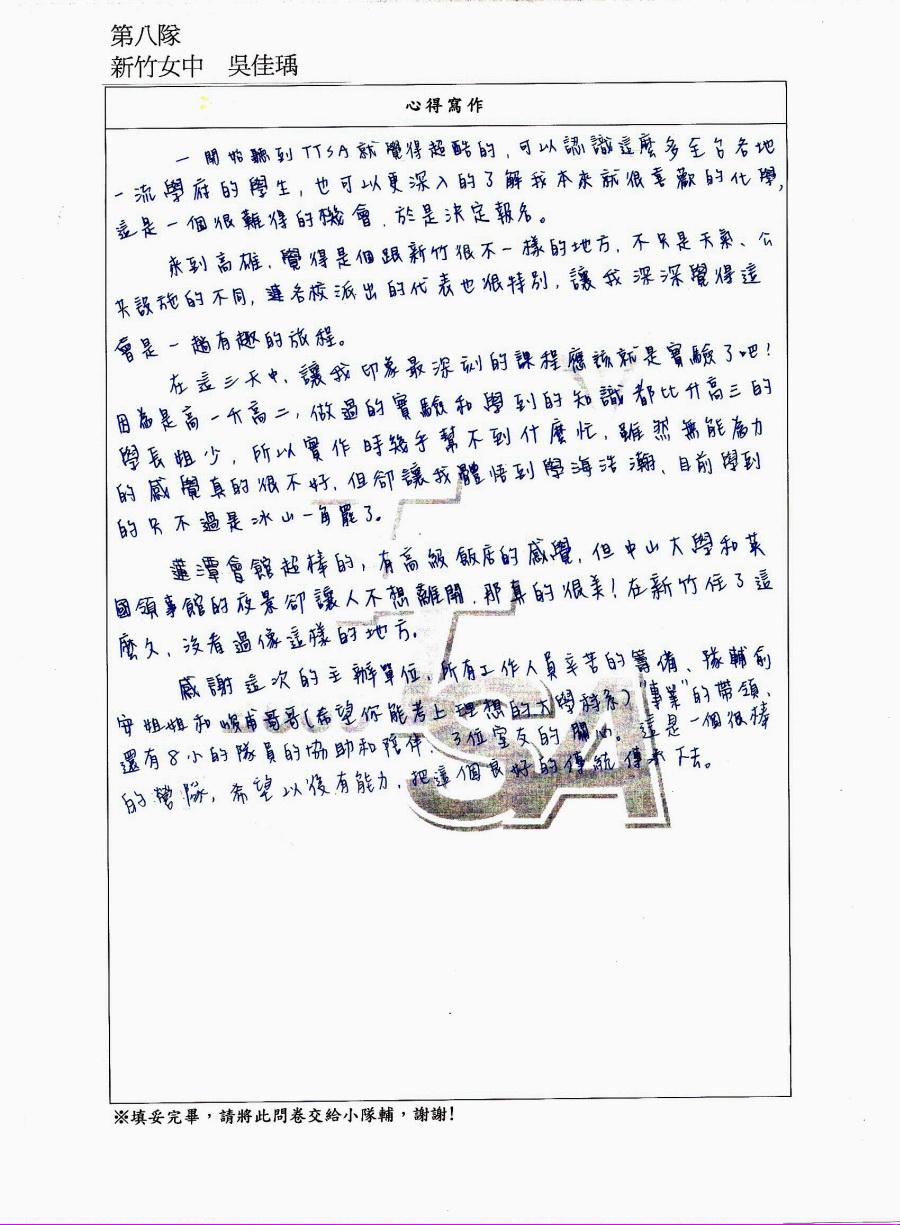 第八隊
新竹女中 吳佳瑀
心得寫作
一開始聽到TTSA就覺得超酷的,可以認識這麼多全台各地
一流學府的學生,也可以更深入的了解我本來就很喜歡的化學,
這是一個很難得的機會,於是決定報名。
來到高雄,覺得是個跟新竹很不一樣的地方,不只是天氣、公
共設施的不同,連各校派出的代表也很特別,讓我深深覺得這
會是一趟有趣的旅程。
在這三天中,讓我印象最深刻的課程應該就是實驗了吧!
因為是高一升高二,做過的實驗和學到的知識都比升高三的
學長姐少,所以實作時幾乎幫不到什麼忙,雖然無能為力
的感覺真的很不好,但卻讓我體悟到學海浩瀚、目前學到
的只不過是冰山一角罷了。
蓮潭會館超棒的,有高級飯店的感覺,但中山大學和英
國領事館的夜景卻讓人不想離開,那真的很美!在新竹住了這
麼久,沒看過像這樣的地方。
感謝這次的主辦單位,所有工作人員辛苦的籌備、隊輔俞
安姐姐和 哥哥(希望你能考上理想的大學科系)"專業"的帶領、
還有8小的隊員的協助和陪伴、3位室友的關心。這是一個很棒
的營隊,希望以後有能力,把這個良好的傳統傳承下去。
TTSA
※填妥完畢,請將此問卷交給小隊輔,謝謝!